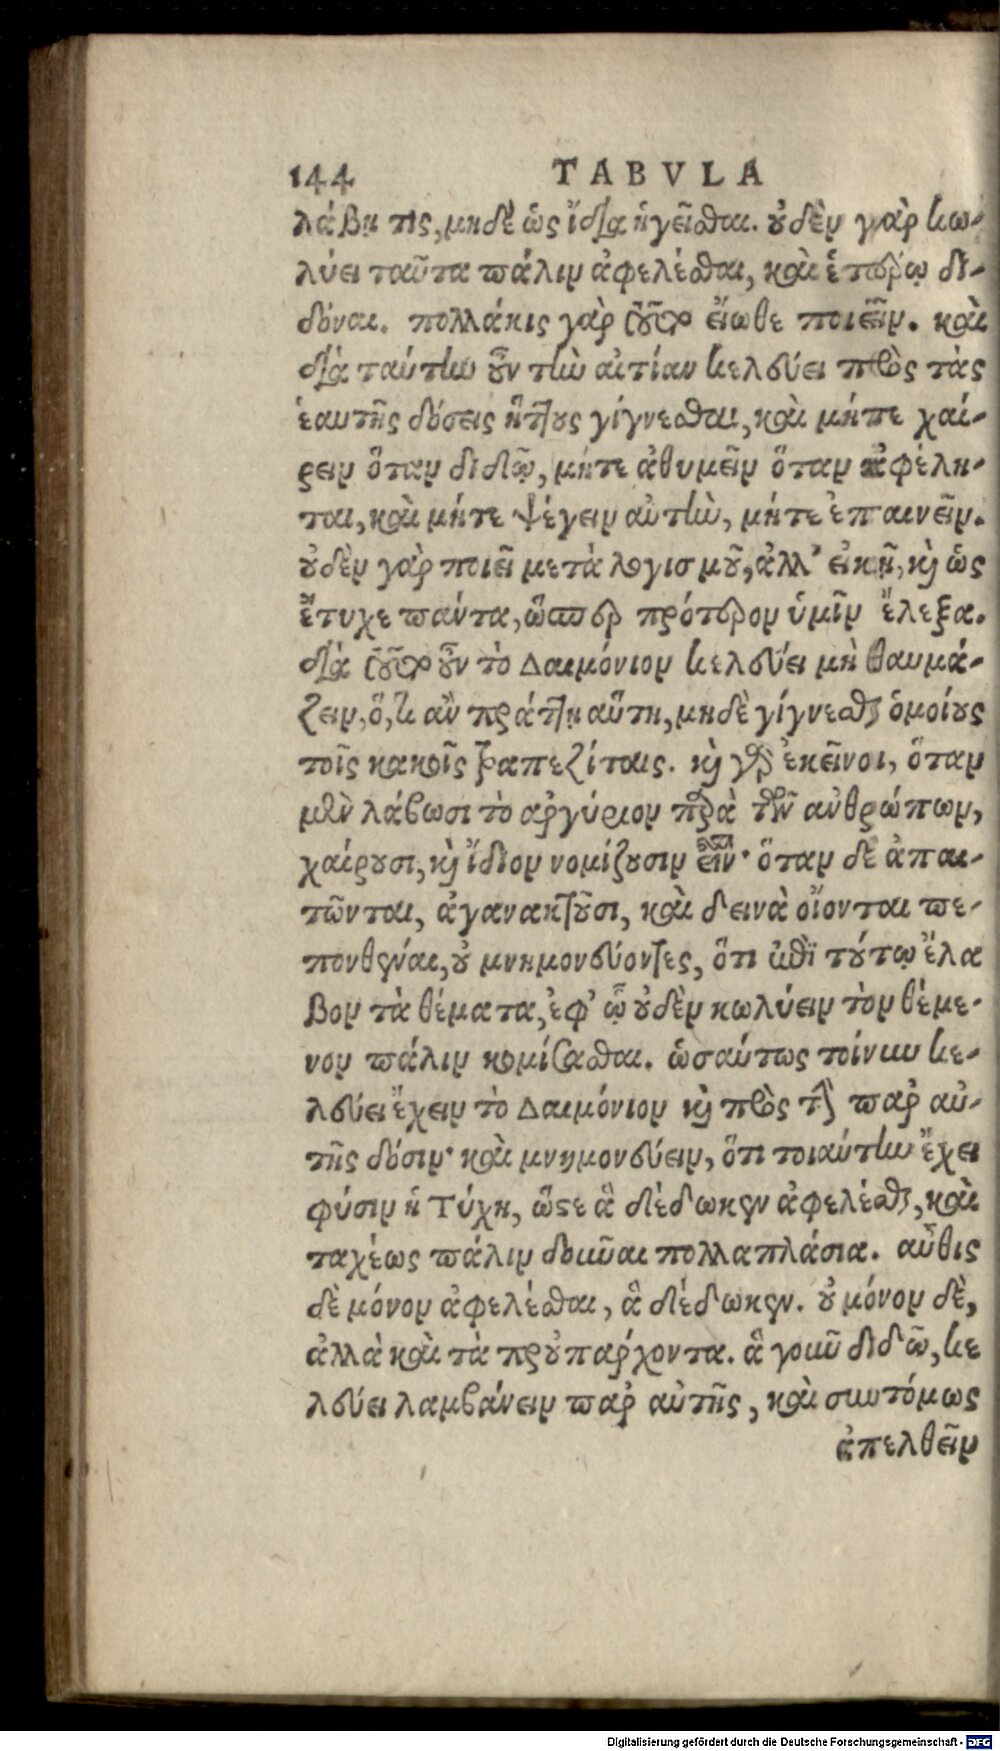 144 TABVLA
λάβῃ τις, μηδὲ ὡς ἴδια ἡγεῖσθαι. οὐδὲν γὰρ κω-
λύει ταῦτα πάλιν ἀφελέσθαι, καὶ ἑτέρῳ δι-
δόναι. πολλάκις γὰρ τοῦτο εἴωθε ποιεῖν. καὶ
διὰ ταύτην οὖν τὴν αἰτίαν κελεύει πρὸς τὰς
ἑαυτῆς δόσεις ἥττους γίγνεσθαι, καὶ μήτε χαί-
ρειν ὅταν διδῷ, μήτε ἀθυμεῖν ὅταν ἀφέλη-
ται, καὶ μήτε ψέγειν αὐτὴν, μήτε ἐπαινεῖν.
οὐδὲν γὰρ ποιεῖ μετὰ λογισμοῦ, ἀλλ' εἰκῆ, καὶ ὡς
ἔτυχε πάντα, ὥσπερ πρότερον ὑμῖν ἔλεξα.
διὰ τοῦτο οὖν τὸ Δαιμόνιον κελεύει μὴ θαυμά-
ζειν, ὅ, τι ἂν πράττῃ αὕτη, μηδὲ γίγνεσθαι ὁμοίους
τοῖς κακοῖς τραπεζίταις. καὶ γὰρ ἐκεῖνοι, ὅταν
μὲν λάβωσι τὸ ἀργύριον παρὰ τῶν ἀνθρώπων,
χαίρουσι, καὶ ἴδιον νομίζουσιν εἶναι· ὅταν δὲ ἀπαι-
τῶνται, ἀγανακτοῦσι, καὶ δεινὰ οἴονται πε-
πονθέναι, οὐ μνημονεύοντες, ὅτι ἐπὶ τούτῳ ἔλα
βον τὰ θέματα, ἐφ' ᾧ οὐδὲν κωλύειν τὸν θέμε-
νον πάλιν κομίσασθαι. ὡσαύτως τοίνυν κε-
λεύει ἔχειν τὸ Δαιμόνιον καὶ πρὸς τὴν παρ' αὐ-
τῆς δόσιν· καὶ μνημονεύειν, ὅτι τοιαύτην ἔχει
φύσιν ἡ Τύχη, ὥστε ἃ δέδωκεν ἀφελέσθαι, καὶ
ταχέως πάλιν δοῦναι πολλαπλάσια. αὖθις
δὲ μόνον ἀφελέσθαι, ἃ δέδωκεν. οὐ μόνον δὲ,
ἀλλὰ καὶ τὰ προϋπάρχοντα. ἃ γοῦν διδῶ, κε
λεύει λαμβάνειν παρ' αὐτῆς, καὶ συντόμως
ἀπελθεῖν
Digitalisierung gefördert durch die Deutsche Forschungsgemeinschaft - DFG